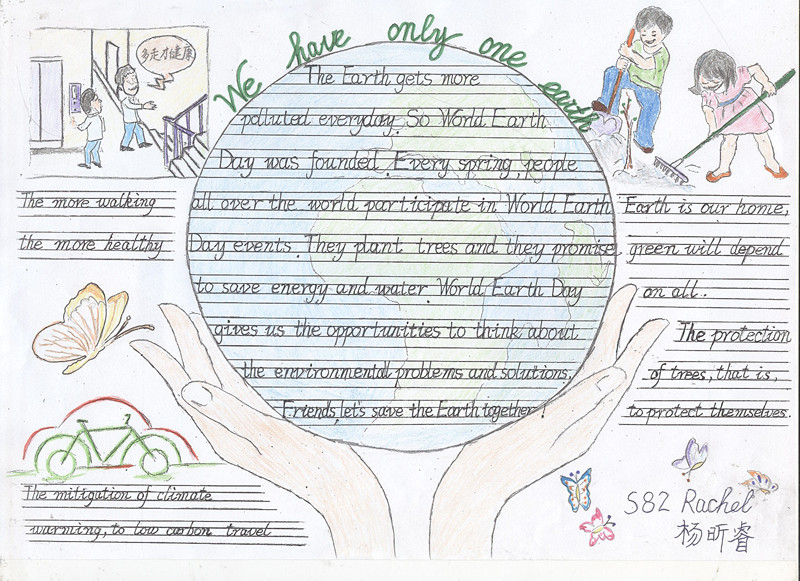 We have only one earth
多走才健康
The more walking
the more healthy
The Earth gets more
polluted everyday. So World Earth
Day was founded. Every spring, people
all over the world participate in World Earth
Day events. They plant trees and they promise
to save energy and water. World Earth Day
gives us the opportunities to think about
the environmental problems and solutions.
Friends, let's save the Earth together!
Earth is our home,
green will depend
on all.
The protection
of trees, that is,
to protect themselves.
The mitigation of climate
warming, to low carbon travel
S82 Rachel
杨昕睿